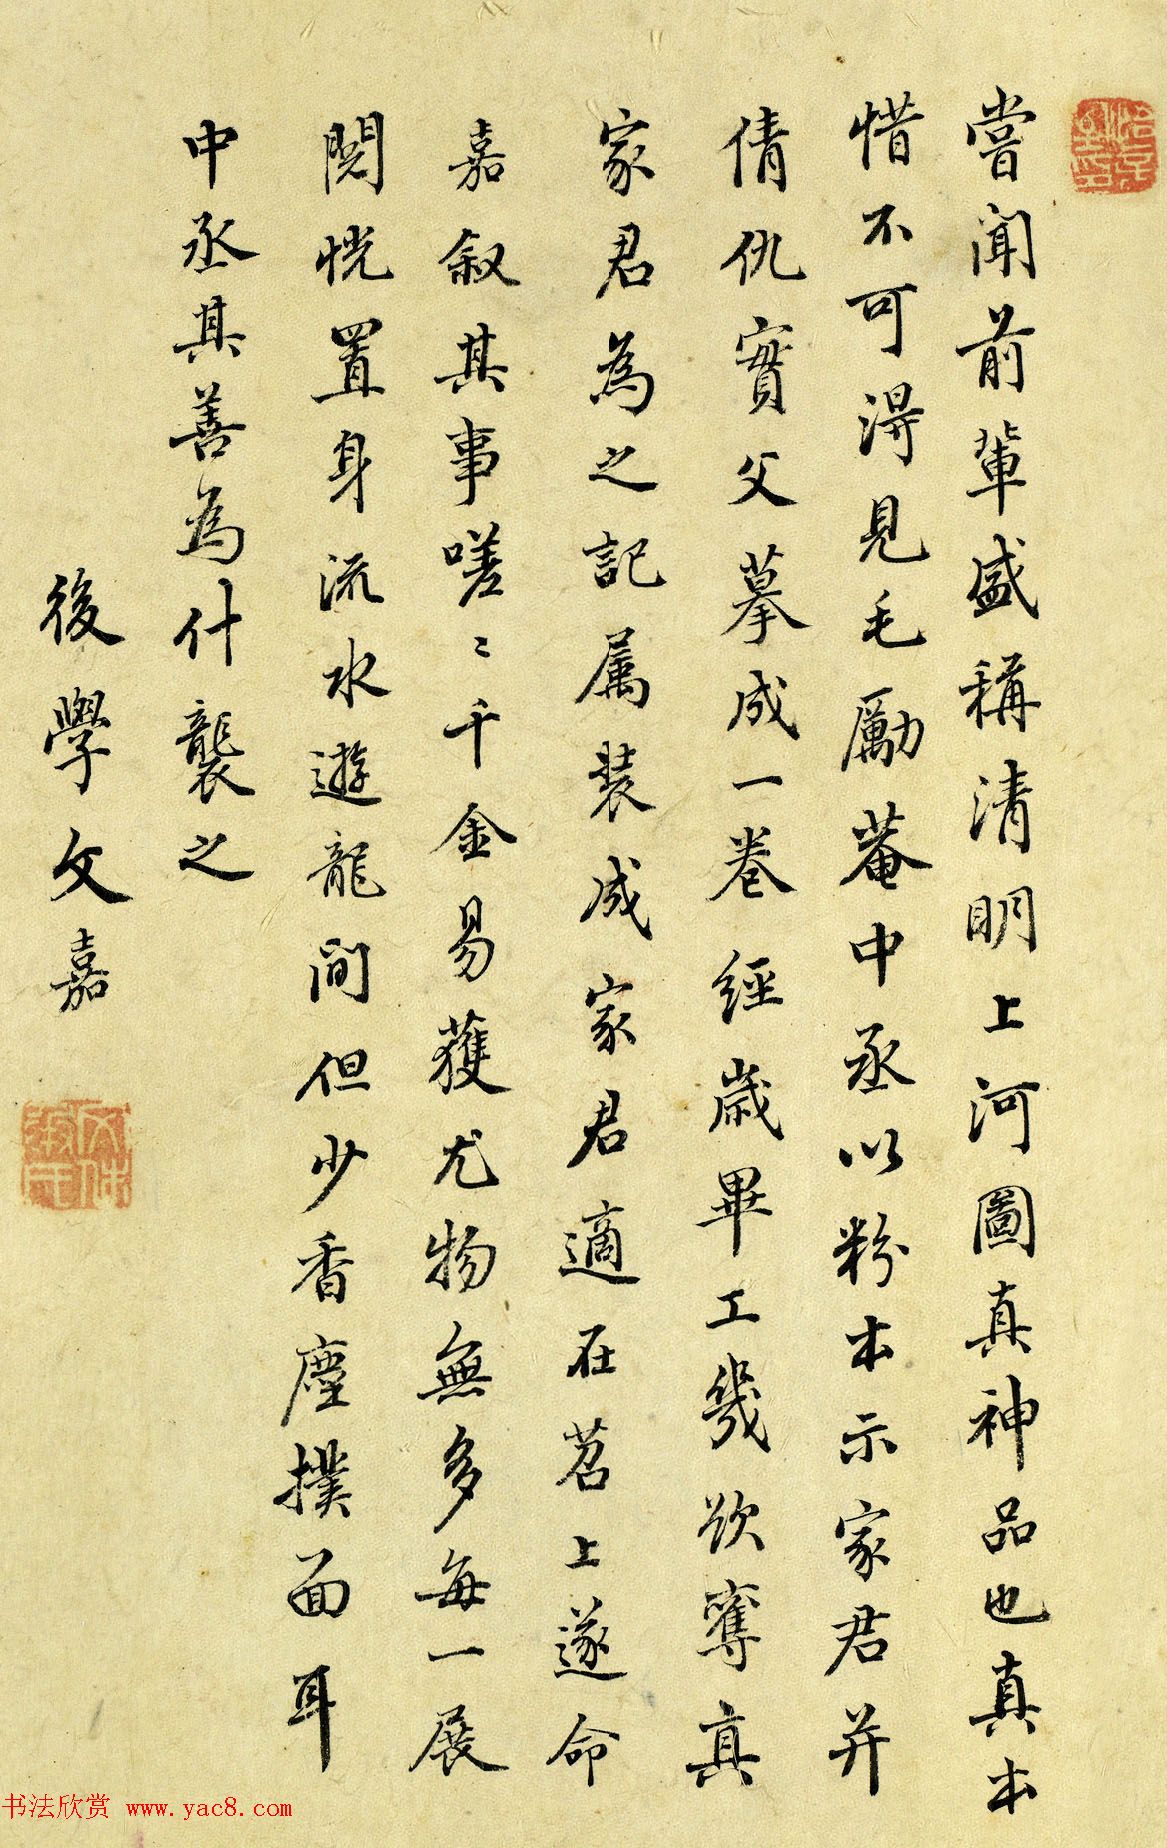 嘗聞前輩盛稱清明上河圖真神品也真本
惜不可得見毛勵菴中丞以粉本示家君并
倩仇實父摹成一卷經歲畢工幾欲奪真
家君為之記属裝成家君適在苕上遂命
嘉叙其事嗟〻千金易獲尤物無多每一展
閱恍置身流水遊龍間但少香塵撲面耳
中丞其善為什襲之
後學文嘉
书法欣赏 www.yac8.com